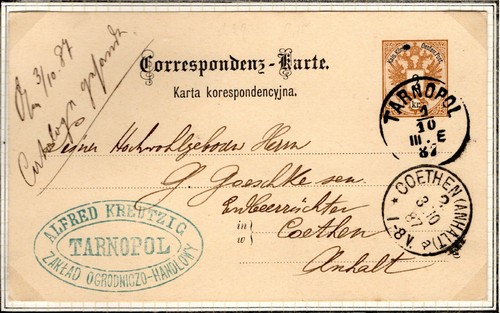 3/10.87
Correspondenz-Karte.
Karta korespondencyjna.
2
kr.
TARNOPOL
1
10
III E
87
Seiner Hochwohlgeboren Herrn
G. Goeschke sen
Erdbeerzüchter
in
w
Coethen
Anhalt
COETHEN (ANHALT)
3 10
87
ALFRED KREUTZIG
TARNOPOL
ZAKŁAD OGRODNICZO-HANDLOWY